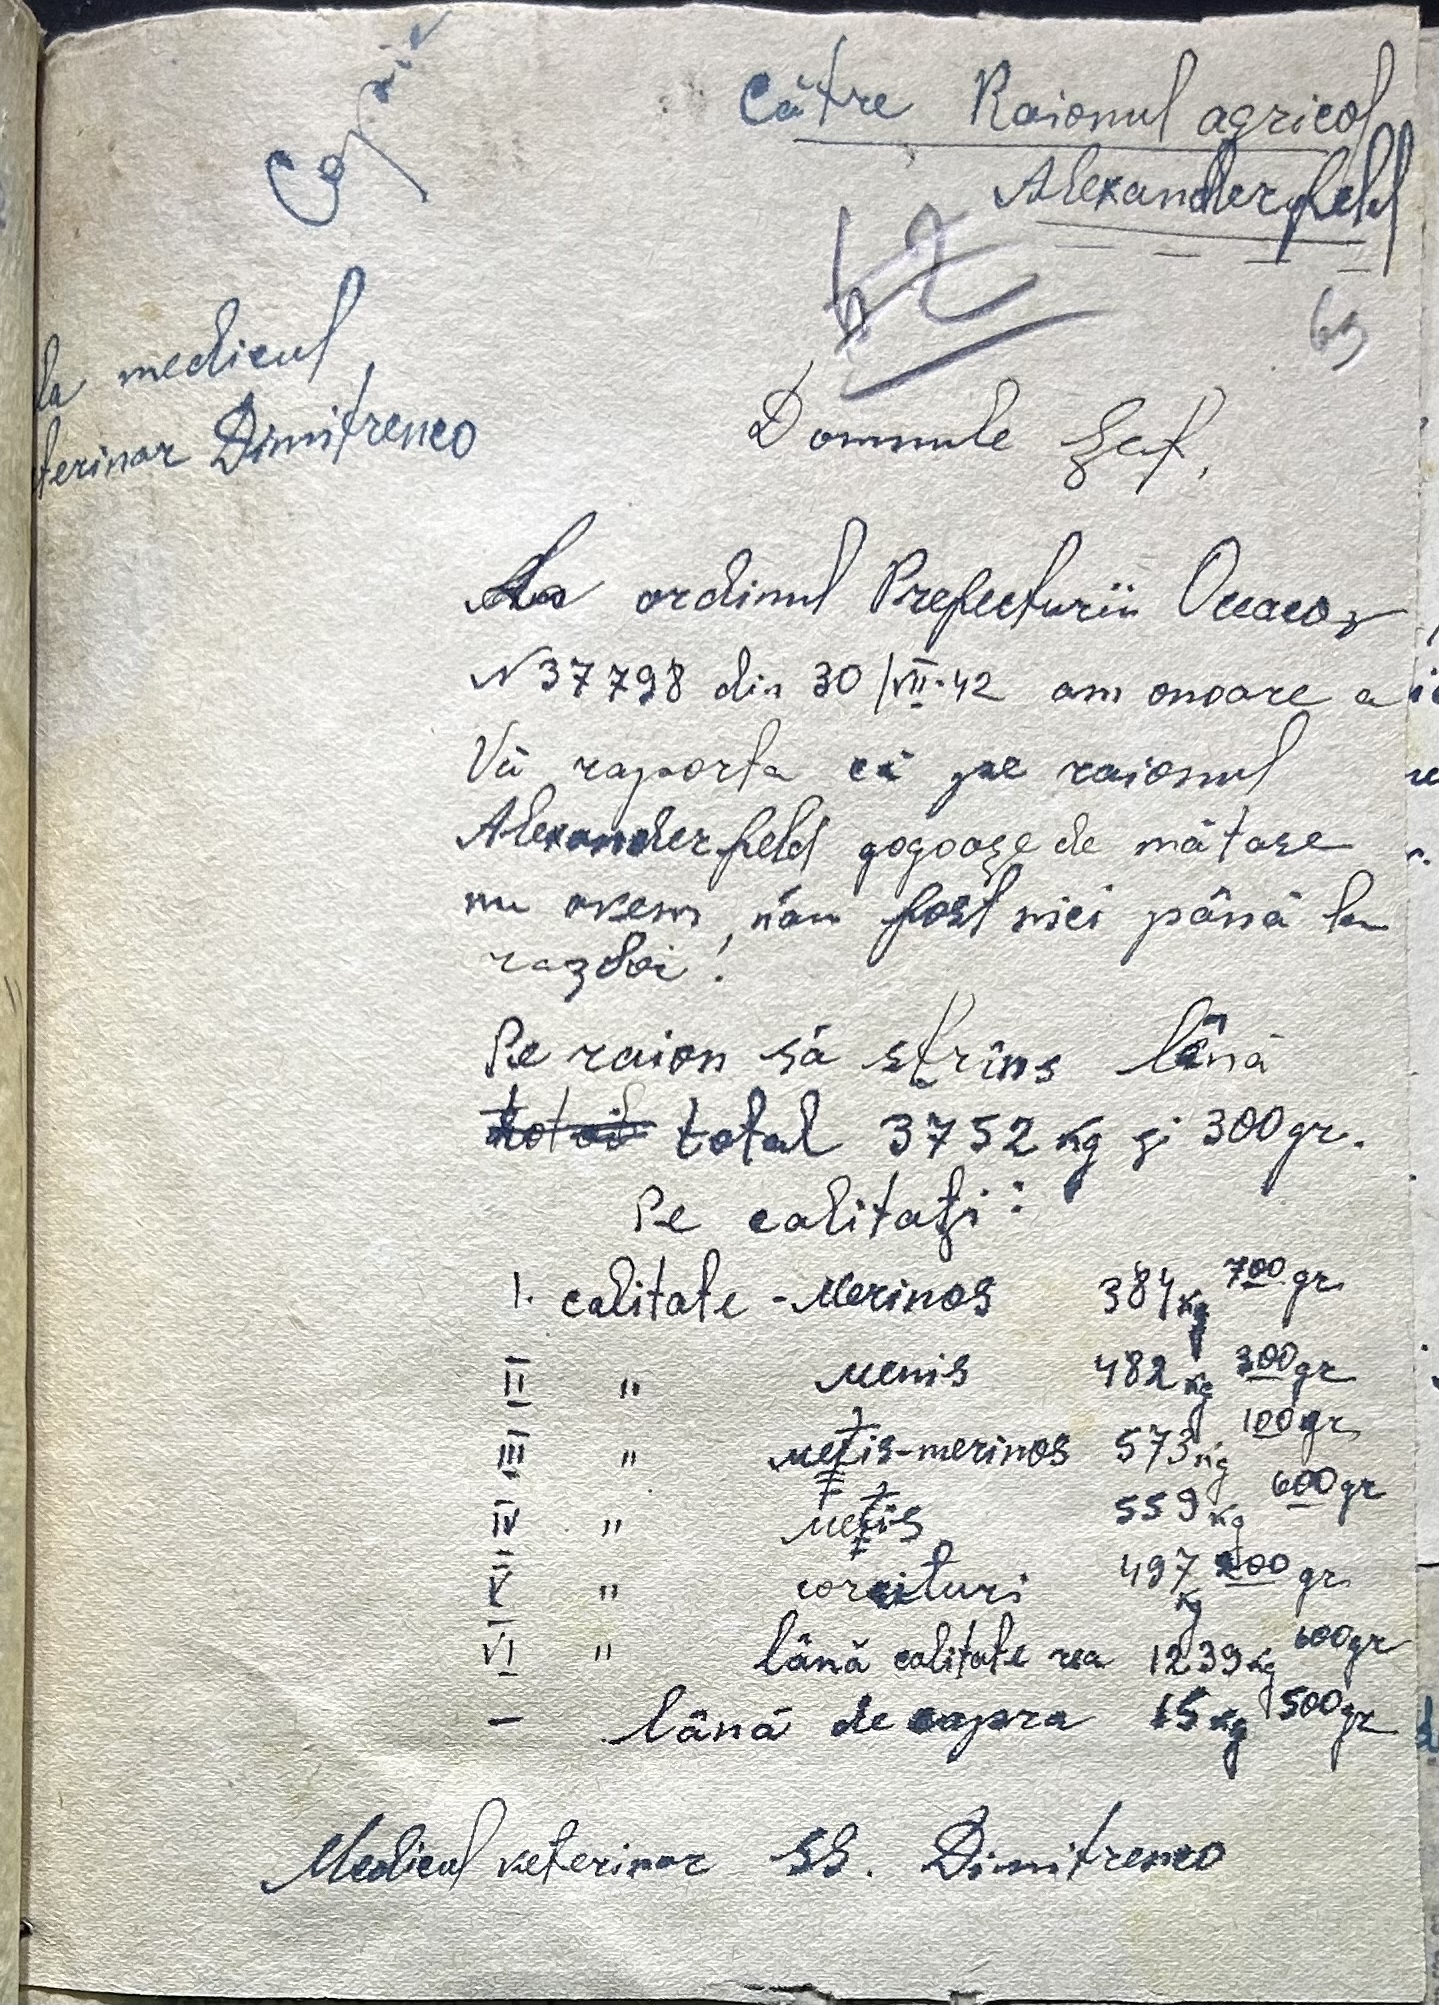 Copie
Către Raionul agricol
Alexanderfeld
62
63
la medicul
terinar Dimitrenco
Domnule Şef,
La ordinul Prefecturii Oceacov
N 37798 din 30/VII-42 am onoare a
Vă raporta că pe raionul
Alexanderfeld gogoaşe de mătase
nu avem, n'au fost nici până la
razboi!
Pe raion să strîns lână
total 3752 kg şi 300 gr.
Pe calitaţi:
I. calitate - Merinos 384 kg 700 gr
II " Menis 482 kg 300 gr
III " Meţis-merinos 573 kg 100 gr
IV " Meţis 559 kg 600 gr
V " corcituri 497 kg 200 gr
VI " lână calitate rea 1239 kg 600 gr
— lână de capra 15 kg 500 gr
Medicul veterinar SS. Dimitrenco